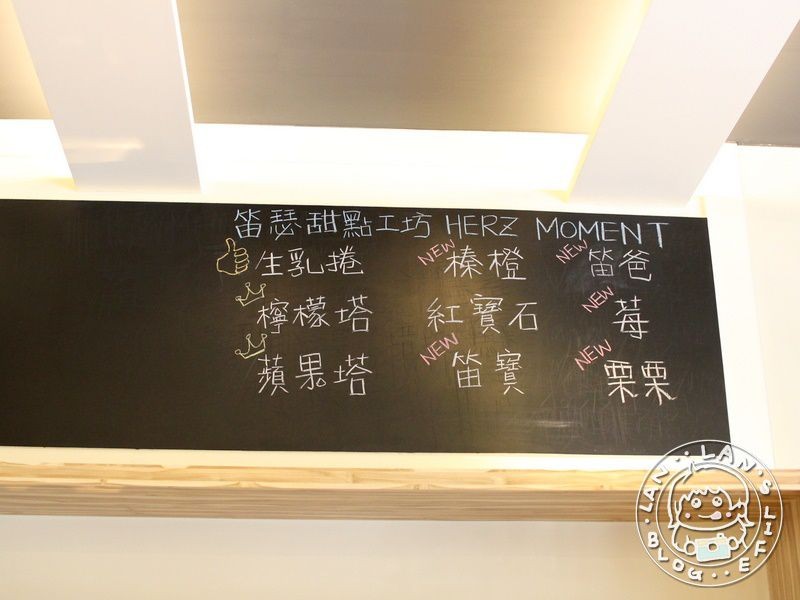 笛瑟甜點工坊 HERZ MOMENT
生乳捲 NEW 榛橙 NEW 笛爸
檸檬塔 紅寶石 NEW 莓
蘋果塔 NEW 笛寶 NEW 栗栗
LAN LAN'S LIFE BLOG